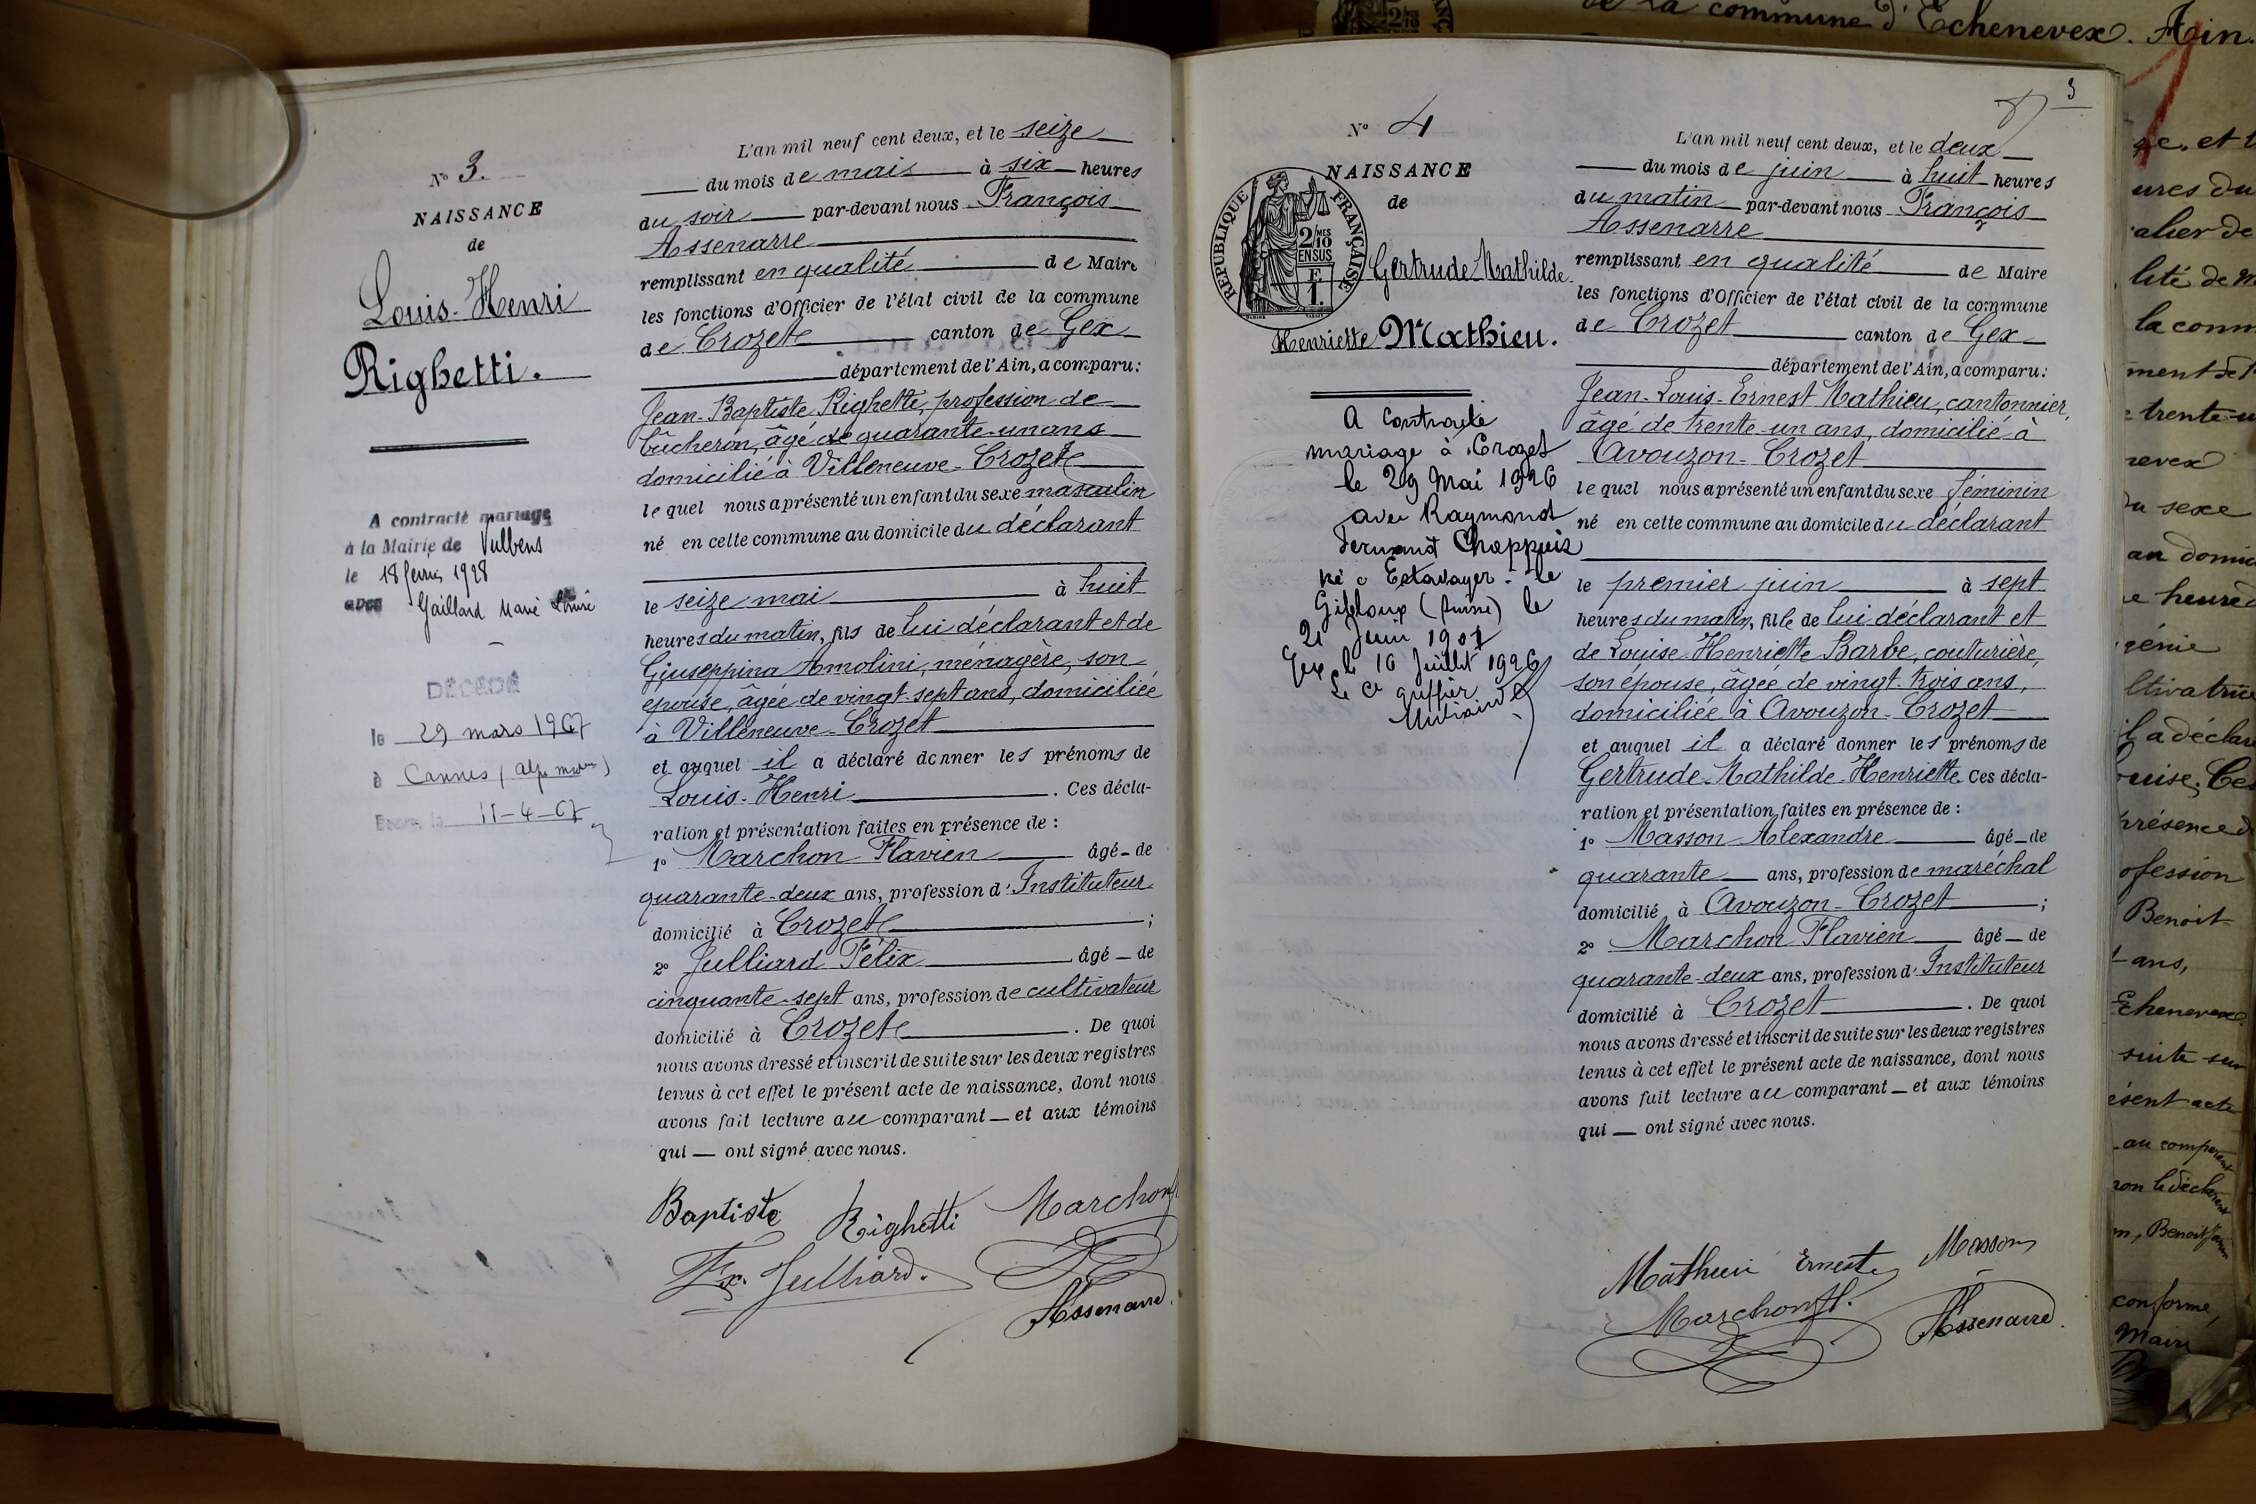 de la commune d'Echenevex. Ain.
N° 3.
NAISSANCE
de
Louis-Henri
Righetti.
A contracté mariage
à la Mairie de Vulbens
le 18 février 1928
avec Gaillard Marie
DÉCÉDÉ
le 29 mars 1967
à Cannes (Alpes mmes)
11-4-67
L'an mil neuf cent deux, et le seize
du mois de mai à six heures
du soir par-devant nous François
Assenarre
remplissant en qualité de Maire
les fonctions d'Officier de l'état civil de la commune
de Crozet canton de Gex
département de l'Ain, a comparu :
Jean-Baptiste Righetti, profession de
bûcheron, âgé de quarante-un ans
domicilié à Villeneuve-Crozet
lequel nous a présenté un enfant du sexe masculin
né en cette commune au domicile du déclarant
le seize mai à huit
heures du matin, fils de lui déclarant et de
Giuseppina Amolini, ménagère, son
épouse, âgée de vingt-sept ans, domiciliée
à Villeneuve-Crozet
et auquel il a déclaré donner les prénoms de
Louis-Henri. Ces décla-
ration et présentation faites en présence de :
1° Marchon Flavien âgé de
quarante-deux ans, profession d'Instituteur
domicilié à Crozet ;
2° Julliard Félix âgé de
cinquante-sept ans, profession de cultivateur
domicilié à Crozet. De quoi
nous avons dressé et inscrit de suite sur les deux registres
tenus à cet effet le présent acte de naissance, dont nous
avons fait lecture au comparant et aux témoins
qui ont signé avec nous.
Baptiste Righetti Marchon f
Fx. Julliard.
Assenarre.
3
N° 4
NAISSANCE
de
RÉPUBLIQUE FRANÇAISE
2/10 MES
EN SUS
F
1.
Gertrude Mathilde
Henriette Mathieu.
A contracté
mariage à Crozet
le 29 Mai 1926
avec Raymond
Fernand Chappuis
né à Estavayer-le
Gibloux (Suisse) le
21 Juin 1901
Gex le 16 Juillet 1926
Le Cis greffier
L'an mil neuf cent deux, et le deux
du mois de juin à huit heures
du matin par-devant nous François
Assenarre
remplissant en qualité de Maire
les fonctions d'Officier de l'état civil de la commune
de Crozet canton de Gex
département de l'Ain, a comparu :
Jean-Louis-Ernest Mathieu, cantonnier,
âgé de trente-un ans, domicilié à
Avouzon-Crozet
lequel nous a présenté un enfant du sexe féminin
né en cette commune au domicile du déclarant
le premier juin à sept
heures du matin, fille de lui déclarant et
de Louise-Henriette Barbe, couturière,
son épouse, âgée de vingt-trois ans,
domiciliée à Avouzon-Crozet
et auquel il a déclaré donner les prénoms de
Gertrude-Mathilde-Henriette Ces décla-
ration et présentation faites en présence de :
1° Masson Alexandre âgé de
quarante ans, profession de maréchal
domicilié à Avouzon-Crozet ;
2° Marchon Flavien âgé de
quarante-deux ans, profession d'Instituteur
domicilié à Crozet. De quoi
nous avons dressé et inscrit de suite sur les deux registres
tenus à cet effet le présent acte de naissance, dont nous
avons fait lecture au comparant et aux témoins
qui ont signé avec nous.
Mathieu Ernest Masson
Marchon fl.
Assenarre.
ures du
lité de
la comm
trente-u
du sexe
au domi
heure
génie
ltivatrice
il a déclaré
ouise. Ces
présence d
ofession
Benoit
ans,
Echenevex
suite sur
ésent acte
au comparant
non le déclarant
m, Benoit
conforme,
Maire